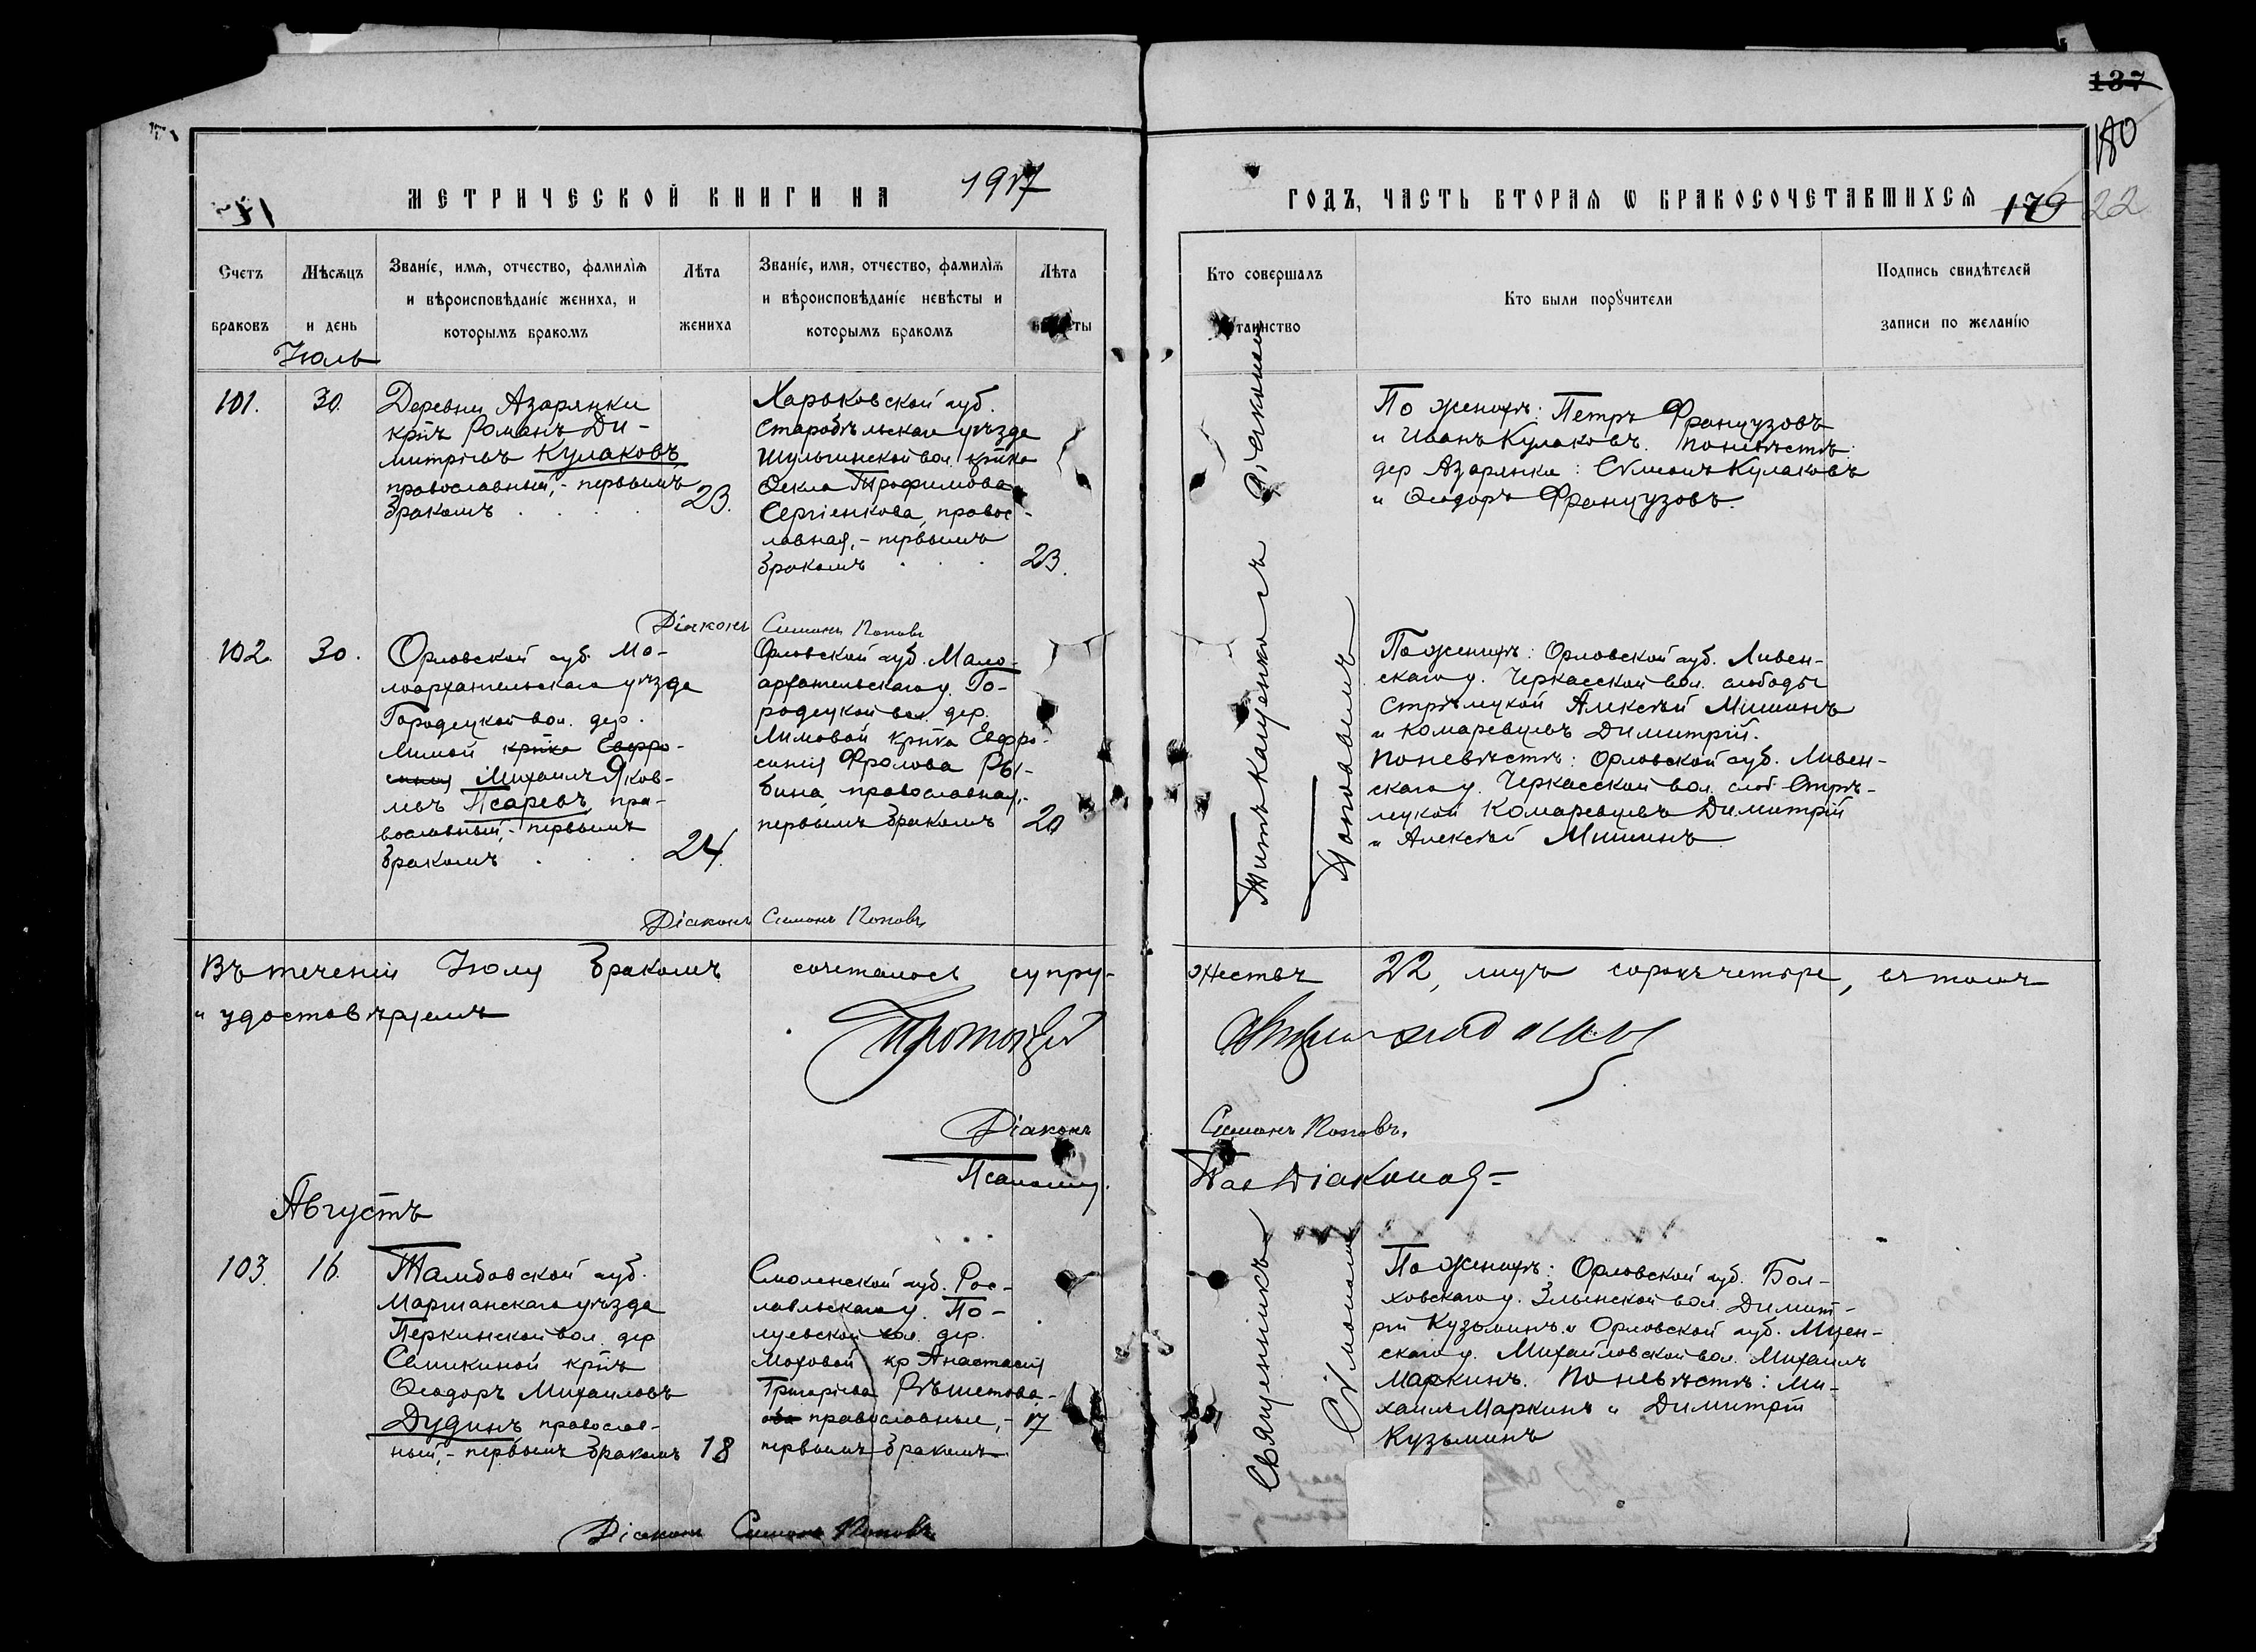 137
180
МЕТРИЧЕСКОЙ КНИГИ НА 1917
ГОДЪ, ЧАСТЬ ВТОРАЯ Ѡ БРАКОСОЧЕТАВШИХСЯ 179 22
Счетъ браковъ
Мѣсяцъ и день
Званіе, имя, отчество, фамилія
и вѣроисповѣданіе жениха, и
которымъ бракомъ
Лѣта
жениха
Званіе, имя, отчество, фамилія
и вѣроисповѣданіе невѣсты и
которымъ бракомъ
Лѣта
Кто совершалъ
таинство
Кто были порꙋчители
Подпись свидѣтелей
записи по желанію
Июль
101.
30.
Деревни Азарянки
кр̃нъ Романъ Ди-
митріевъ Кулаковъ
православный, - первымъ
бракомъ
23.
Харьковской губ.
Старобѣльскаго уѣзда
Шульгинской вол. кр̃нка
Ѳекла Трофимова
Сергіенкова, правос-
лавная, - первымъ
бракомъ
23.
По женихѣ: Петръ Французовъ
и Иванъ Кулаковъ. По невѣстѣ:
дер Азарянки: Сѵмеонъ Кулаковъ
и Ѳеодоръ Французовъ.
Діаконъ Симонъ Поповъ
102.
30.
Орловской губ. Мо-
лоархангельскаго уѣзда
Городецкой вол. дер.
Лимой кр̃нка Евфро-
синія Михаилъ Яков-
левъ Псаревъ, пра-
вославный, - первымъ
бракомъ
24.
Орловской губ. Мало-
архангельскаго у. Го-
родецкой вол. дер.
Лимовой кр̃нка Евфро-
синія Фролова Ры-
бина, православная, -
первымъ бракомъ
20
По женихѣ: Орловской губ. Ливен-
скаго у. Черкасской вол. слободы
Стрѣлецкой Алексѣй Мишинъ
и Комаревцевъ Димитрій.
По невѣстѣ: Орловской губ. Ливен-
скаго у. Черкасской вол. слоб Стрѣ-
лецкой Комаревцевъ Димитрій
и Алексѣй Мишинъ
Титъ Кащенко съ Діакономъ
Поповымъ
Діаконъ Симонъ Поповъ
Въ теченіи Июля бракомъ сочеталось супру-
жествъ 22, лицъ сорокъ четыре, въ томъ
и удостовѣряемъ
Діаконъ Симонъ Поповъ.
Псаломщ.
Августъ
103.
16.
Тамбовской губ.
Моршанскаго уѣзда
Перкинской вол. дер
Семикиной кр̃нъ
Ѳеодоръ Михаиловъ
Дудинъ православ-
ный, - первымъ бракомъ
18
Смоленской губ. Рос-
лавльскаго у. По-
луевской вол. дер.
Моховой кр Анастасія
Григоріева Рѣшетова -
православные, -
первымъ бракомъ
17
Священникъ
Сѵмономъ
По женихѣ: Орловской губ. Бол-
ховскаго у. Злынской вол. Димит-
рій Кузьминъ и Орловской губ. Мцен-
скаго у. Михайловской вол. Михаилъ
Маркинъ. По невѣстѣ: Ми-
хаилъ Маркинъ и Димитрій
Кузьминъ
Діаконъ Симонъ Поповъ